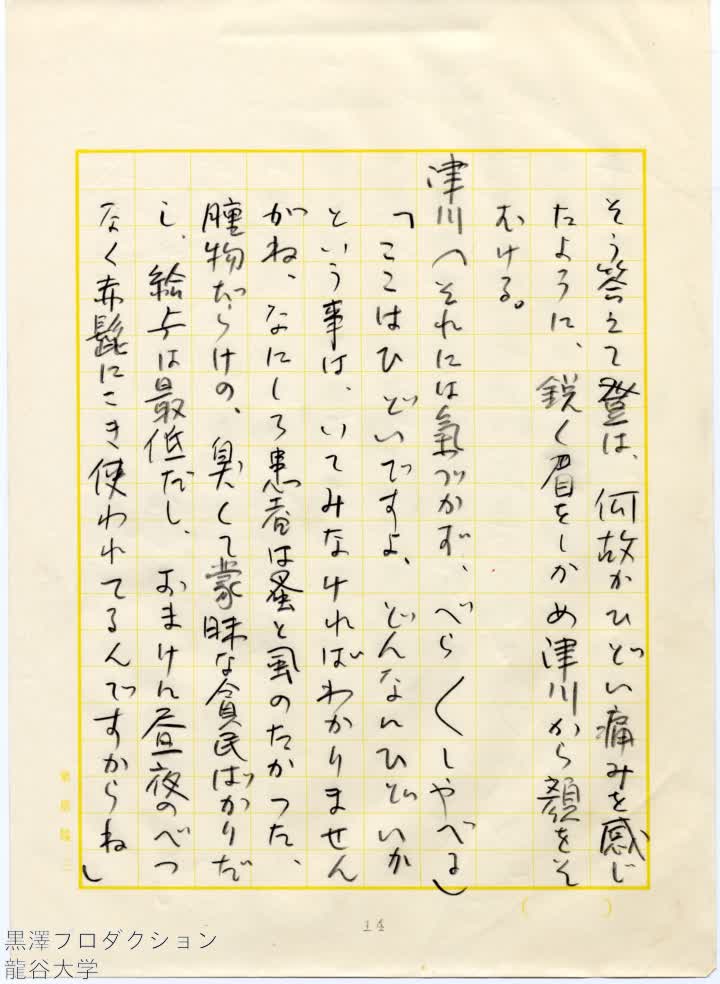 そう答えて登は、何故かひどい痛みを感じ
たように、鋭く眉をしかめ津川から顔をそ
むける。
津川(それには氣づかず、べらべらしやべる)
「ここはひどいですよ、どんなにひどいか
という事は、いてみなければわかりません
がね、なにしろ患者は蚤と虱のたかつた、
腫物だらけの、臭くて蒙昧な貧民ばかりだ
し、給与は最低だし、おまけに昼夜のべつ
なく赤髭にこき使われてるんですからね」
14
黒澤プロダクション
龍谷大学